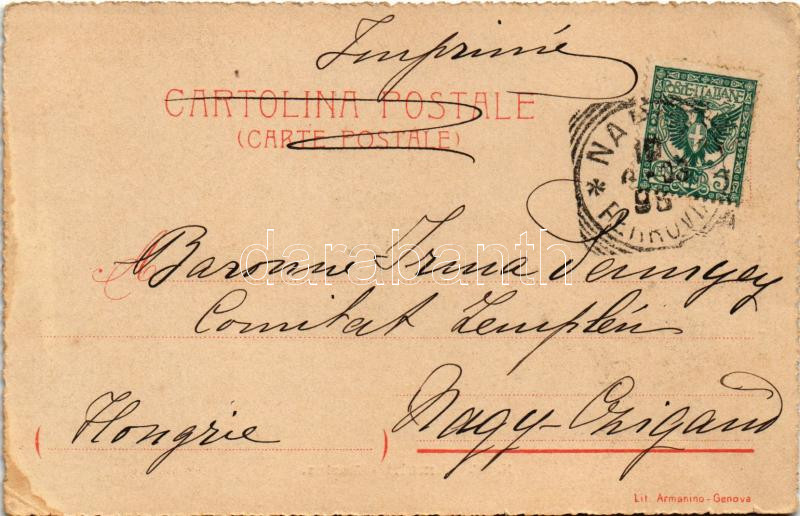 Imprimé
CARTOLINA POSTALE
(CARTE POSTALE)
POSTE ITALIANE
5
NAP
FERROVIA
A Baronne Irma Sennyey
Comitat Zemplén
Hongrie
Nagy-Czigánd
darabanth
Lit. Armanino-Genova